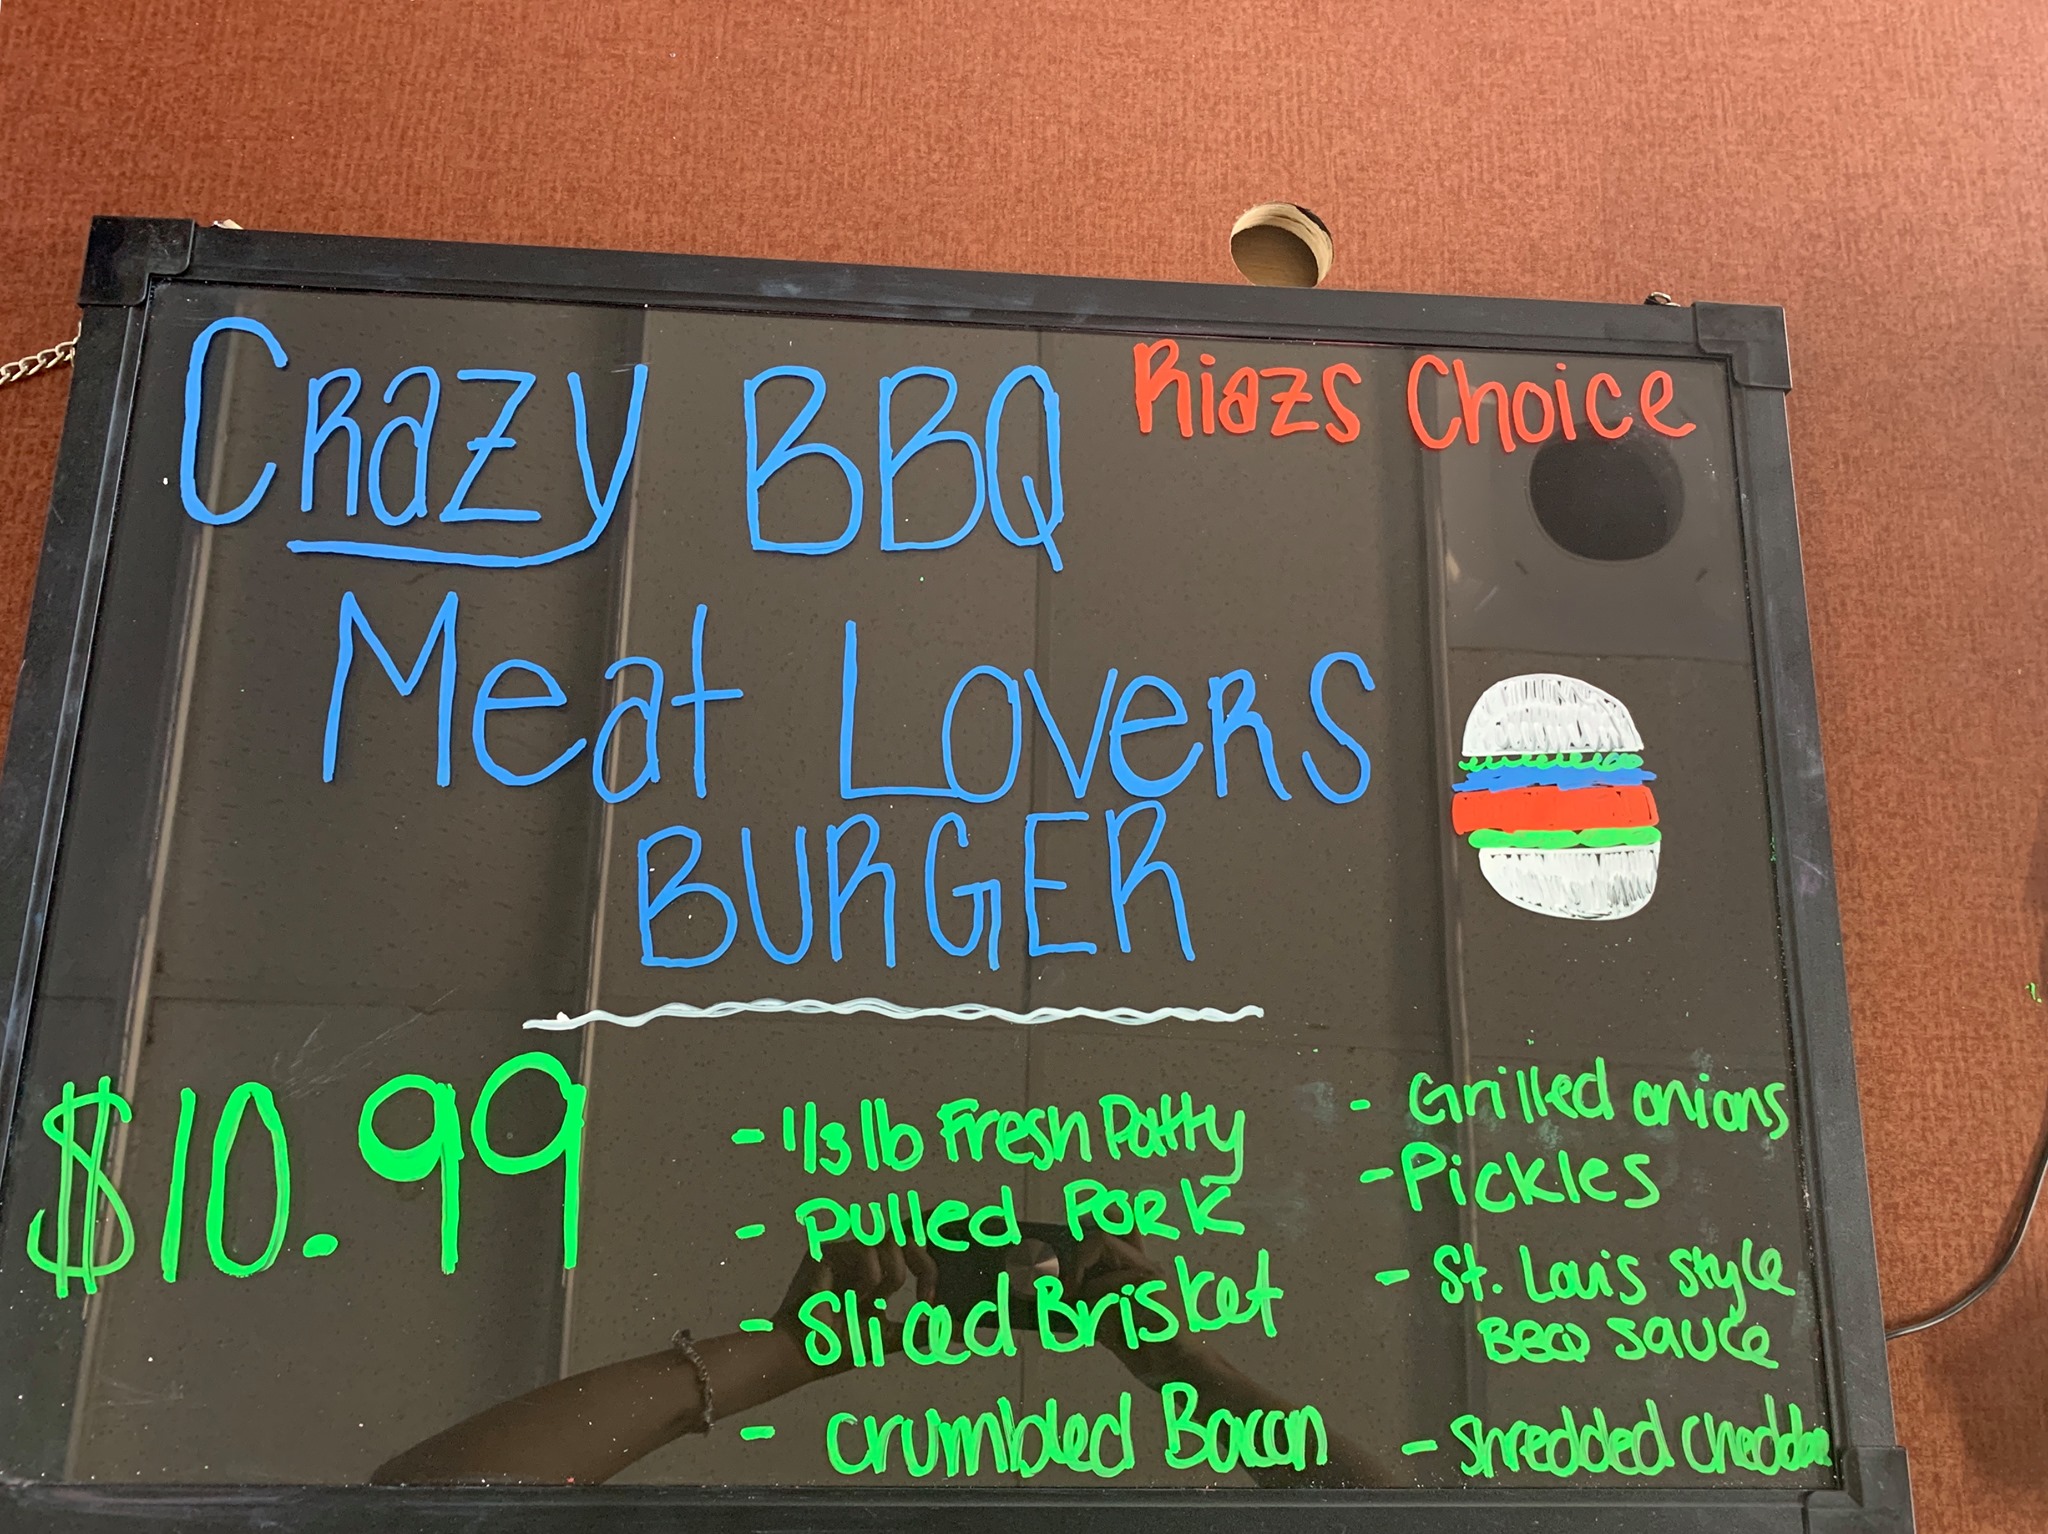 Crazy BBQ
Riazs Choice
Meat Lovers
BURGER
$10.99
- 1/3 lb Fresh Patty
- Pulled Pork
- Sliced Brisket
- Crumbled Bacon
- Grilled onions
- Pickles
- St. Louis style
BBQ sauce
- Shredded Cheddar